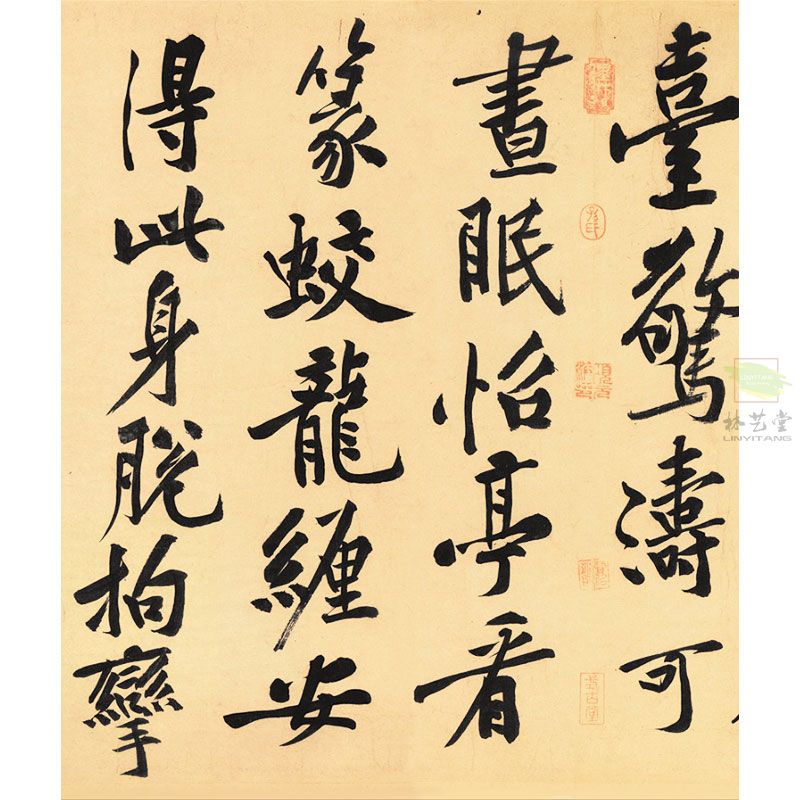 臺驚濤可
晝眠怡亭看
篆蛟龍纏安
得此身脫拘攣
林艺堂
LINYITANG